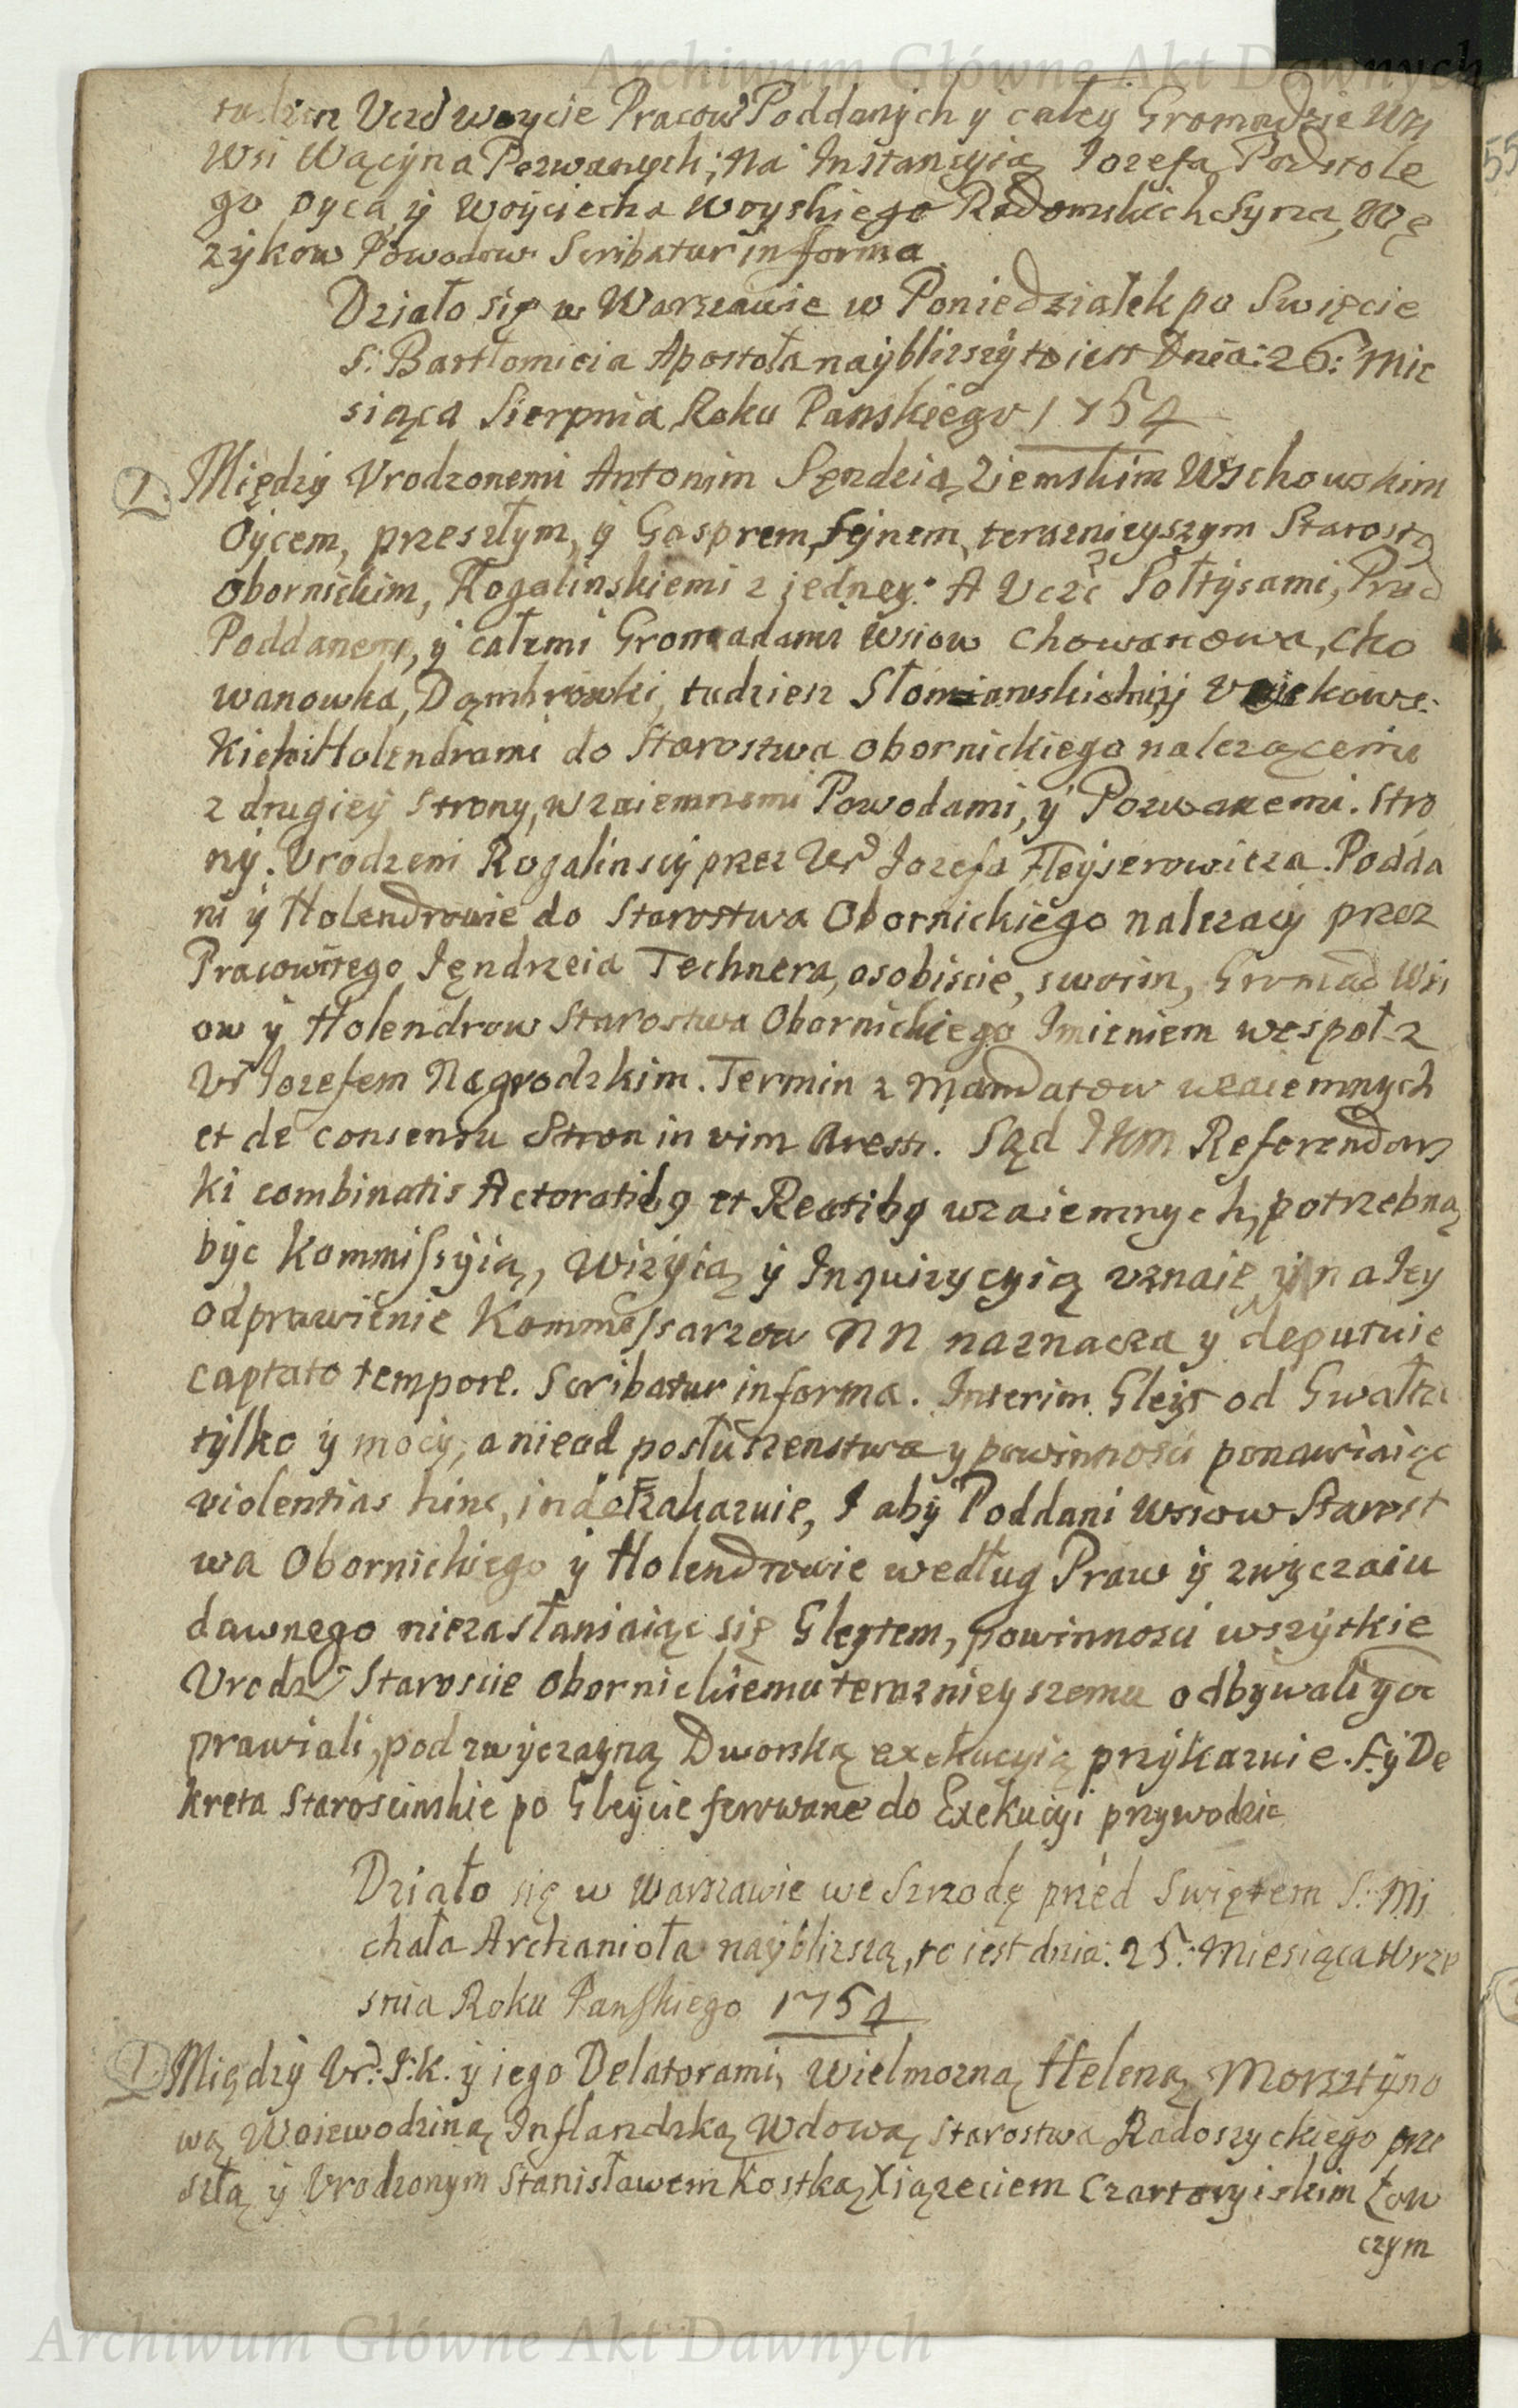 Archiwum Główne Akt Dawnych
tudziesz Uczc Woycie Pracow Poddanych y całey Gromadzie Wsi
Wsi Wącyna Pozwanych; Na Instancyią Iozefa Podstole
go Oyca, y Woyciecha Woyskiego Radomskich Syna, Wę
zykow Powodow Scribatur in forma.
Działo się w Warszawie w Poniedziałek po Swięcie
S: Bartłomieia Apostoła naybliższy to iest Dnia: 26: Mie
siąca Sierpnia Roku Panskiego 1754
1. Między Urodzonemi Antonim Sęndzią Ziemskim Wschowskim
Oycem, przeszłym, y Gasprem Synem, teraznieyszym Starostą
Obornickim, Rogalinskiemi z jedney. A Uczc Sołtysami, Prac
Poddanemi, y całemi Gromadami Wsiow Chowanowa, Cho
wanowka, Dąmbrowki, tudziesz
kiemi Holendrami do Starostwa Obornickiego nalezącemi
z drugiey Strony, wzaiemnemi Powodami, y Pozwanemi. Stro
ny. Urodzeni Rogalinscy przez Ur Iozefa Fleyserowicza. Podda
ni y Holendrowie do Starostwa Obornickiego nalezacy przez
Pracowitego Jęndrzeia Technera, osobiscie, swoim, Gromad Wsi
ow y Holendrow Starostwa Obornickiego Imieniem wespoł z
Ur Iozefem Nagrodzkim. Termin z Mandatow wzaiemnych
et de consensu Stron in vim Arest. Sąd JKM Referendars
ki combinatis Actoratibg et Reatibg wzaiemnych, potrzebną
byc Kommissyią, Wizyią y Inquizycyią uznaie, y na Jey
odprawienie Kommissarzow NN naznacza y deputuie
captato tempore. Scribatur in forma. Interim Gleyt od Gwałtu
tylko y mocy, a nie od posłuszenstwa y powinnosci ponawiaiąc
violentias hinc, inde zakazuie, I aby Poddani Wsiow Starost
wa Obornickiego y Holendrowie według Praw y zwyczaiu
dawnego niezasłaniaiąc się Gleytem, powinnosci wszytkie
Urodz Staroscie Obornickiemu teraznieyszemu odbywali y od
prawiali, pod zwyczayną Dworską exekucyią przykazuie. Sy De
kreta Staroscinskie po Gleycie ferowane do Exekucyi przywodzic
Działo się w Warszawie we Szrodę przed Swiętem S: Mi
chała Archanioła naybliższą, to iest dnia: 25: Miesiąca Wrze
snia Roku Panskiego 1754
1. Między Ur: I:K. y iego Delatorami, Wielmozną Heleną Morsztyno
wą Woiewodziną Inflandzką Wdową, Starostwa Radoszyckiego prze
szłą y Urodzonym Stanisławem Kostką Xiązęciem Czartoryiskim Łow
czym
Archiwum Główne Akt Dawnych